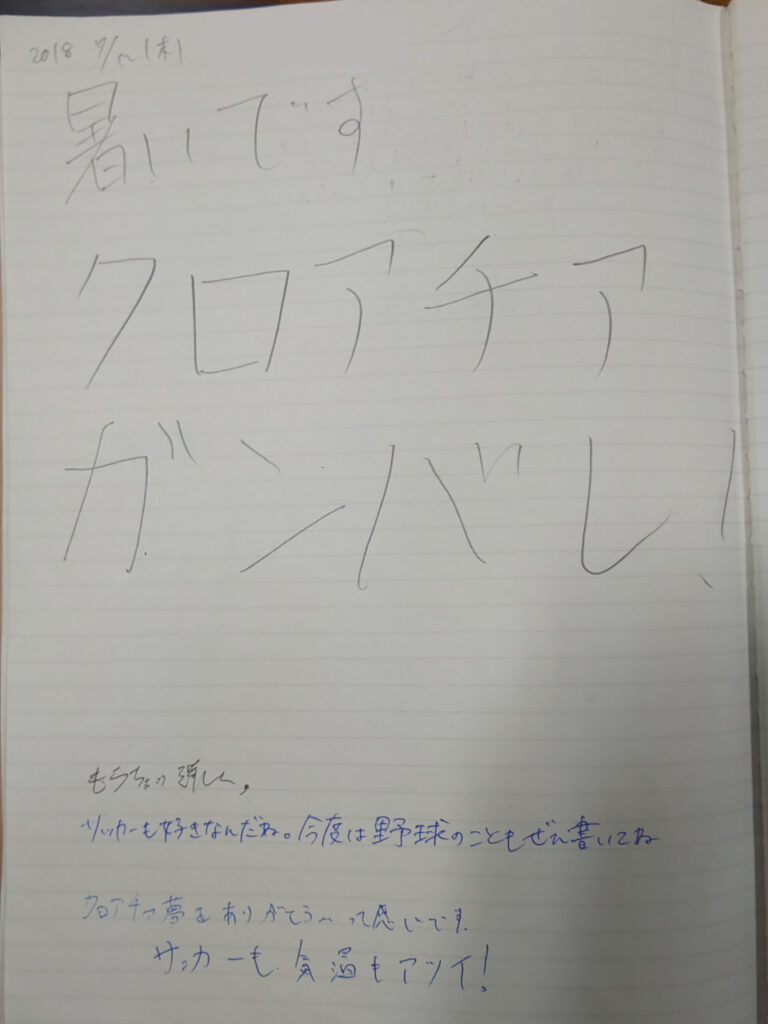 2018 7/12(木)
暑いです
クロアチア
ガンバレ!
もうちょい詳しく。
サッカーも好きなんだね。今度は野球のこともぜひ書いてね
クロアチア夢をありがとう〜って感じです。
サッカーも気温もアツイ!